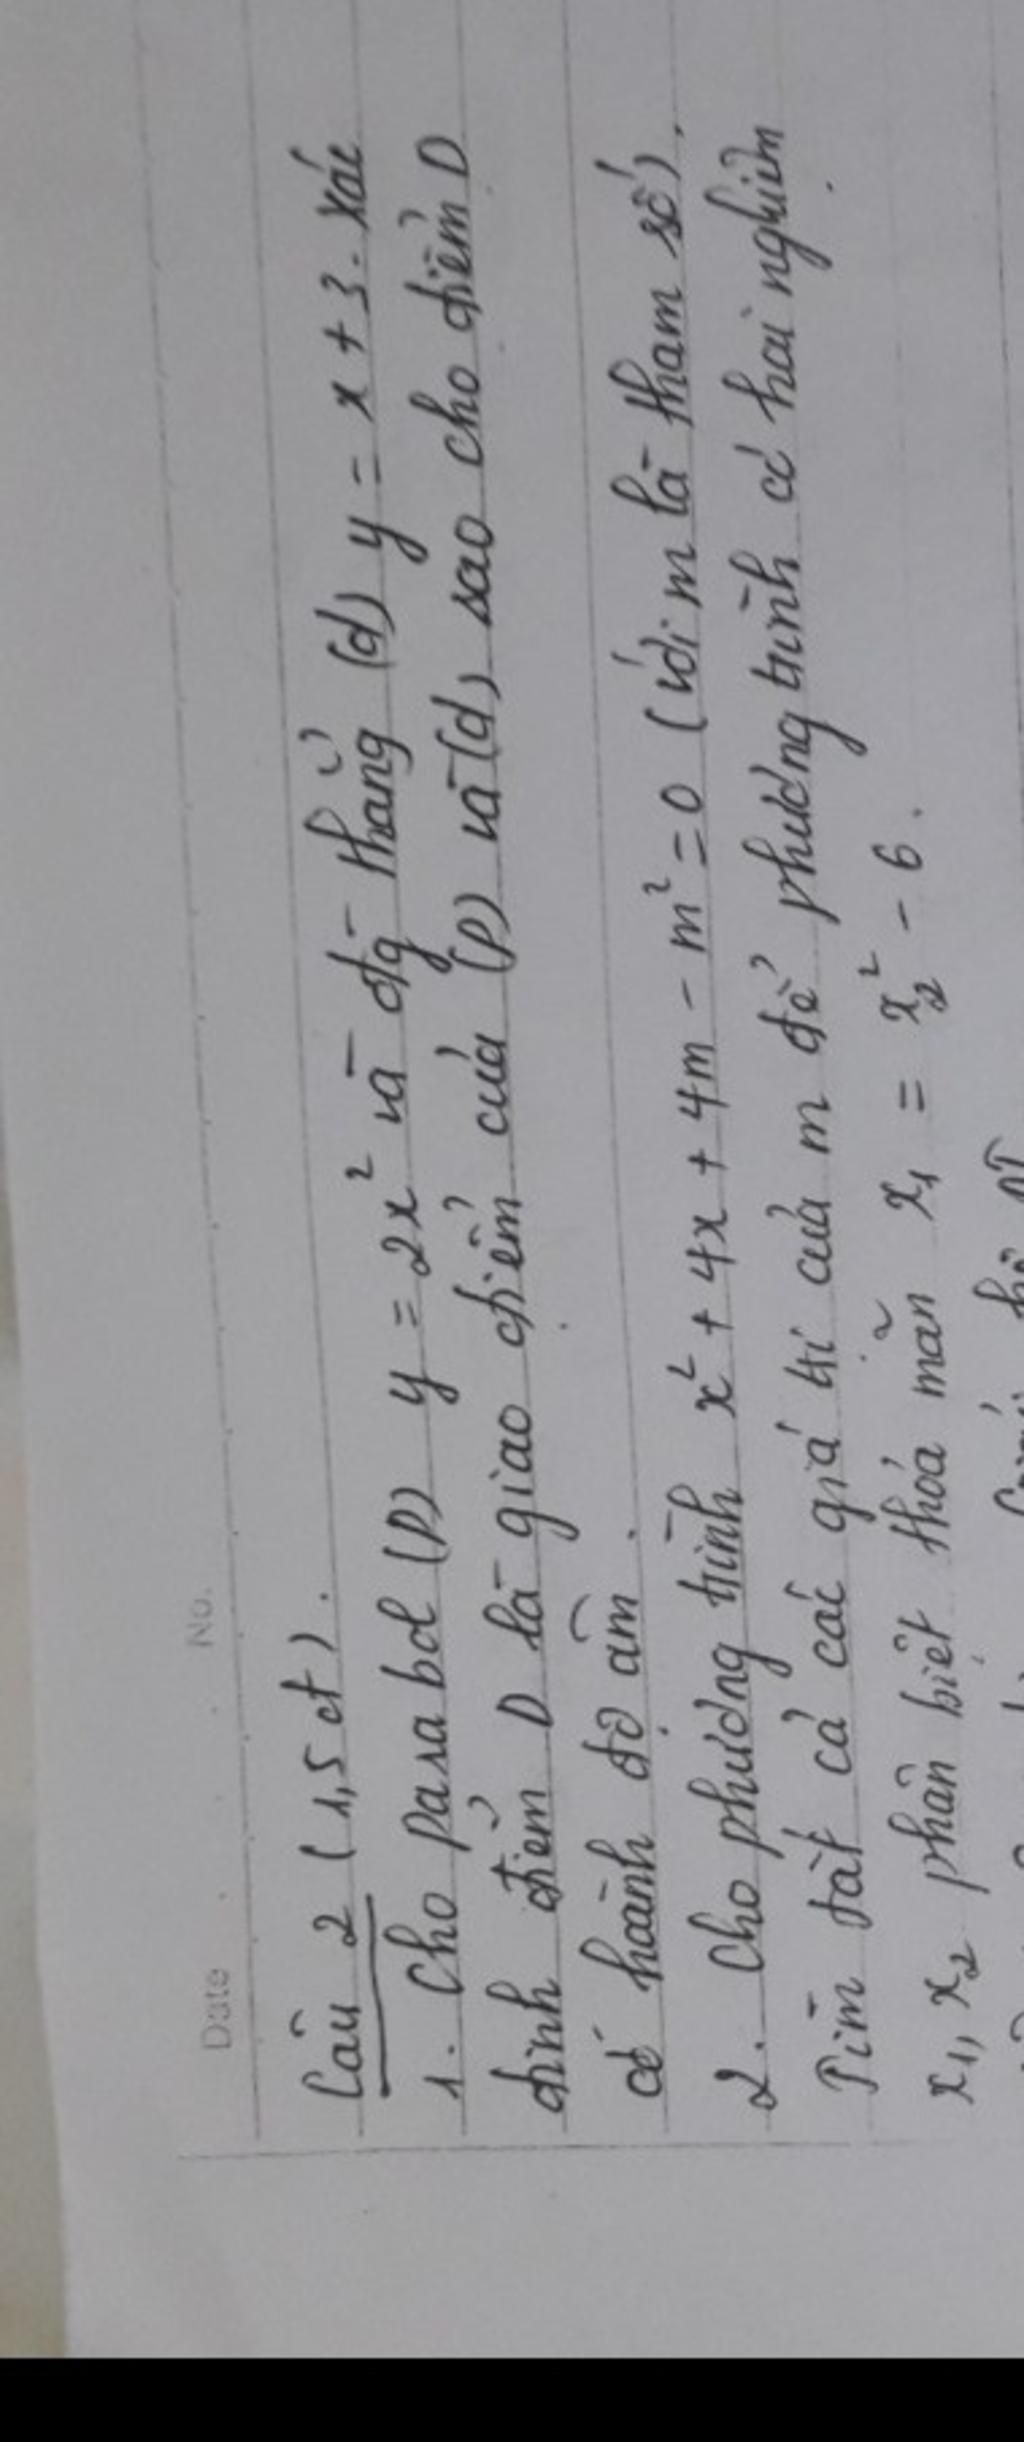 Date No.
Câu 2 (1,5 đ).
1. Cho parabol (P) y = 2x² và đg thẳng (d) y = x + 3. Xác
định điểm D là giao điểm của (P) và (d) sao cho điểm D
có hoành độ âm.
2. Cho phương trình x² + 4x + 4m - m² = 0 (với m là tham số).
Tìm tất cả các giá trị của m để phương trình có hai nghiệm
x₁, x₂ phân biệt thỏa mãn x₁ = x₂² - 6.